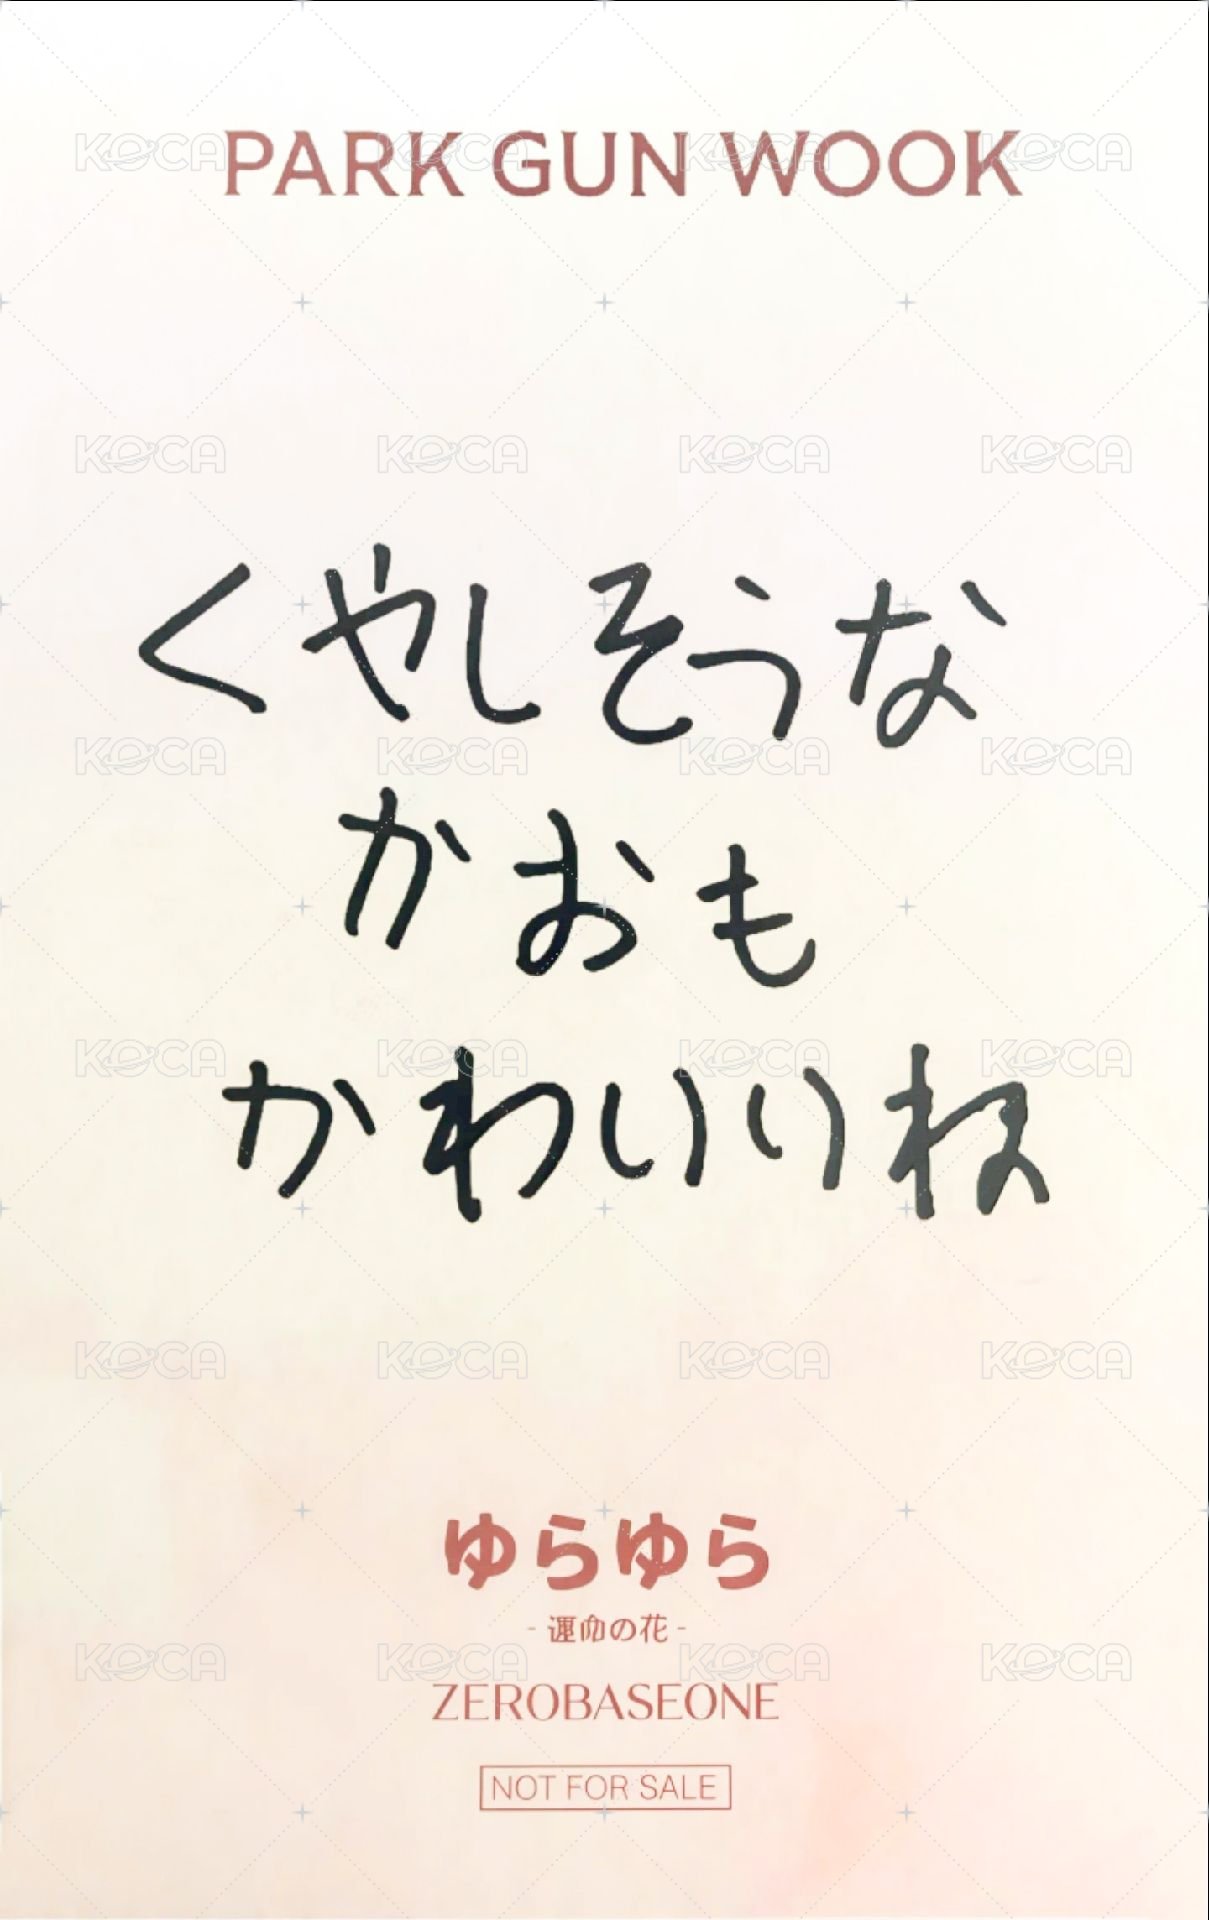 PARK GUN WOOK
くやしそうな
かおも
かわいいね
ゆらゆら
- 運命の花 -
ZEROBASEONE
NOT FOR SALE
KOCA